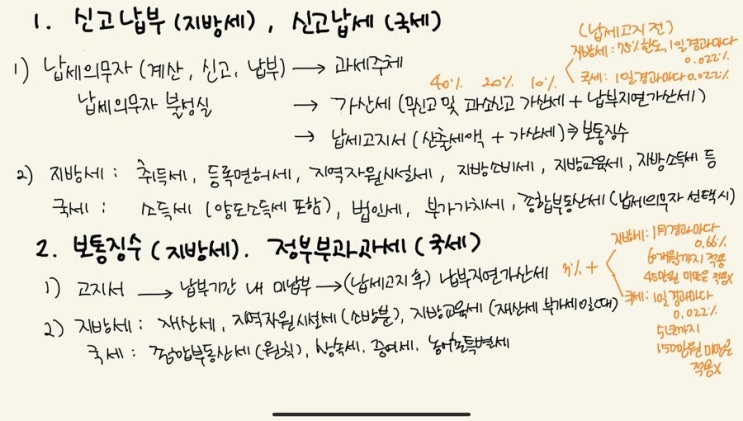 1. 신고납부 (지방세), 신고납세 (국세)
(납세고지 전)
지방세 : 75% 한도, 1일 경과마다
0.022%
국세 : 1일 경과마다 0.022%
1) 납세의무자 (계산, 신고, 납부) → 과세주체
40% 20% 10%
납세의무자 불성실 → 가산세 (무신고 및 과소신고 가산세 + 납부지연가산세)
→ 납세고지서 (산출세액 + 가산세) ⇒ 보통징수
2) 지방세 : 취득세, 등록면허세, 지역자원시설세, 지방소비세, 지방교육세, 지방소득세 등
국세 : 소득세 (양도소득세 포함), 법인세, 부가가치세, 종합부동산세 (납세의무자 선택시)
2. 보통징수 (지방세). 정부부과과세 (국세)
1) 고지서 → 납부기간 내 미납부 → (납세고지 후) 납부지연가산세
3% +
지방세 : 1月 경과마다
0.66%
6개월까지 적용
45만원 미만은 적용X
국세 : 1일 경과마다
0.022%
5년까지
150만원 미만은
적용X
2) 지방세 : 재산세, 지역자원시설세 (소방분), 지방교육세 (재산세 부가세일 때)
국세 : 종합부동산세 (원칙), 상속세. 증여세. 농어촌특별세